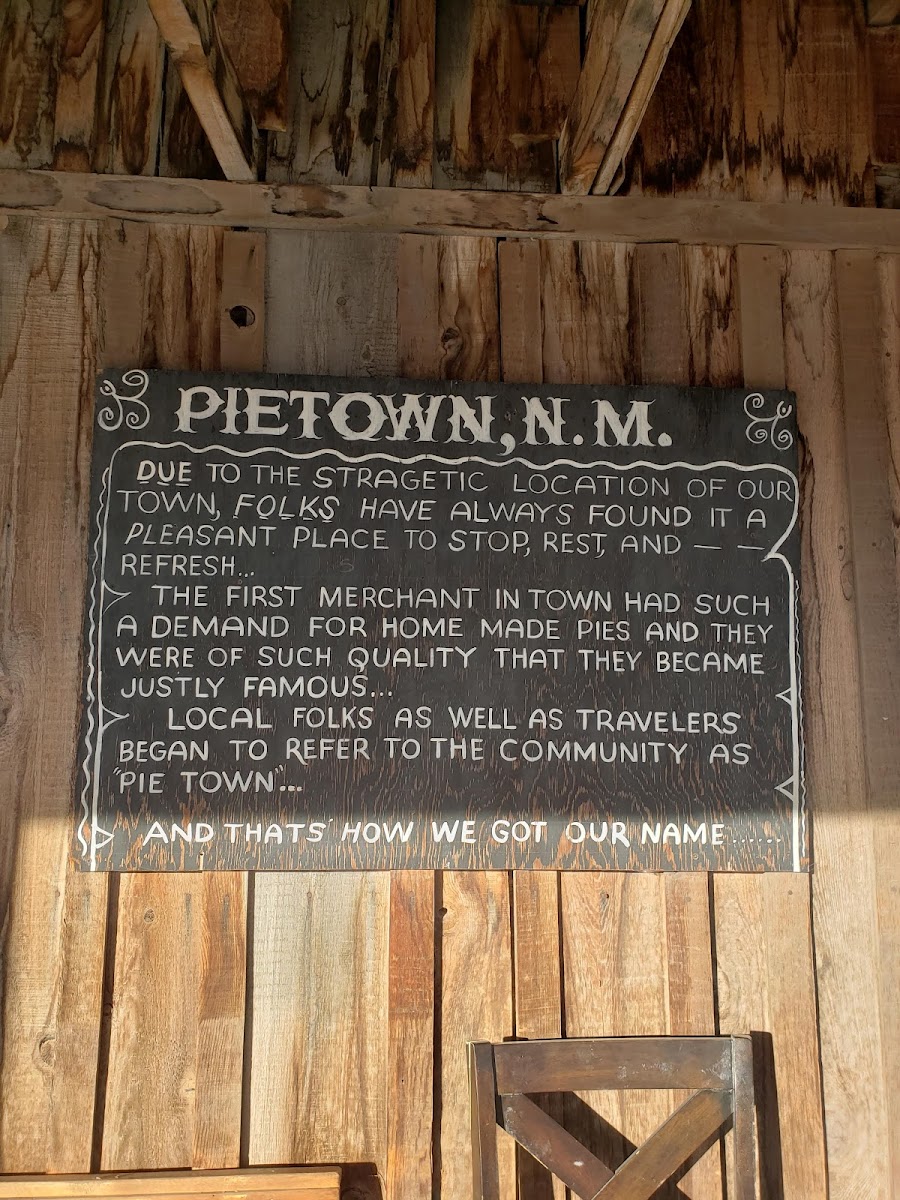 PIETOWN, N.M.
DUE TO THE STRAGETIC LOCATION OF OUR
TOWN, FOLKS HAVE ALWAYS FOUND IT A
PLEASANT PLACE TO STOP, REST, AND — —
REFRESH...
THE FIRST MERCHANT IN TOWN HAD SUCH
A DEMAND FOR HOME MADE PIES AND THEY
WERE OF SUCH QUALITY THAT THEY BECAME
JUSTLY FAMOUS...
LOCAL FOLKS AS WELL AS TRAVELERS
BEGAN TO REFER TO THE COMMUNITY AS
"PIE TOWN"...
AND THATS' HOW WE GOT OUR NAME......